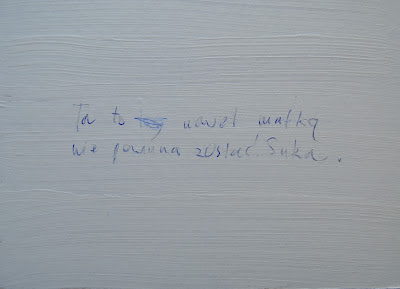 Ta to nawet matką
nie powinna zostać. Suka.